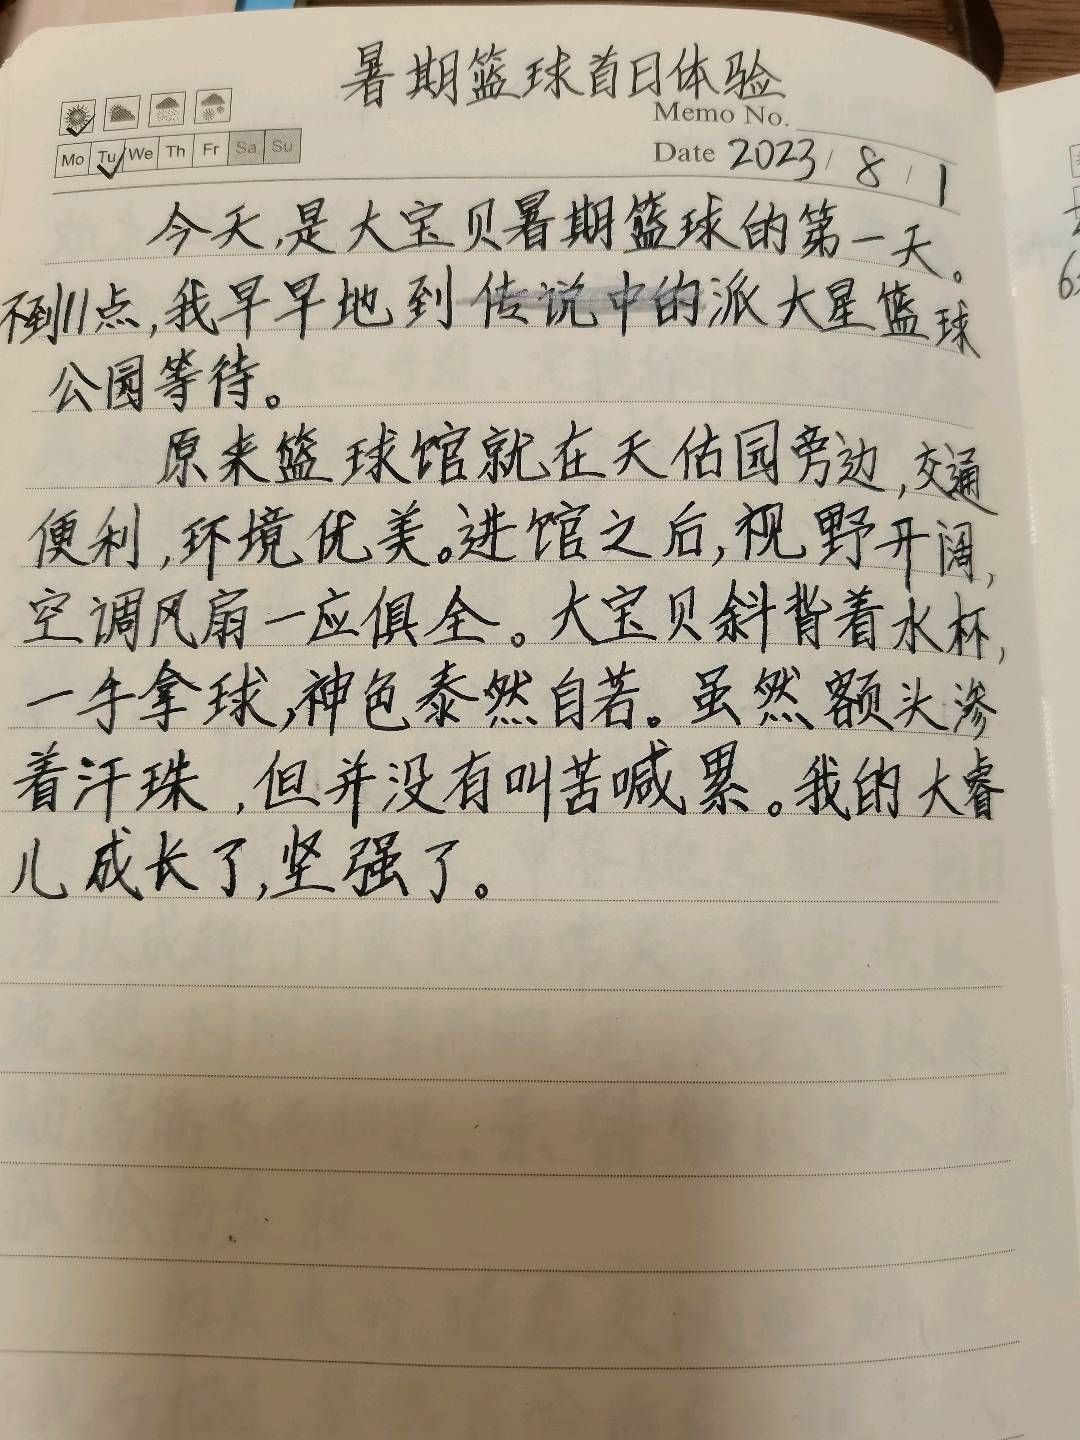 暑期篮球首日体验
Memo No.
Mo Tu We Th Fr Sa Su
Date 2023/8/1
今天,是大宝贝暑期篮球的第一天。
不到11点,我早早地到传说中的派大星篮球
公园等待。
原来篮球馆就在天估园旁边,交通
便利,环境优美。进馆之后,视野开阔,
空调风扇一应俱全。大宝贝斜背着水杯,
一手拿球,神色泰然自若。虽然额头渗
着汗珠,但并没有叫苦喊累。我的大睿
儿成长了,坚强了。